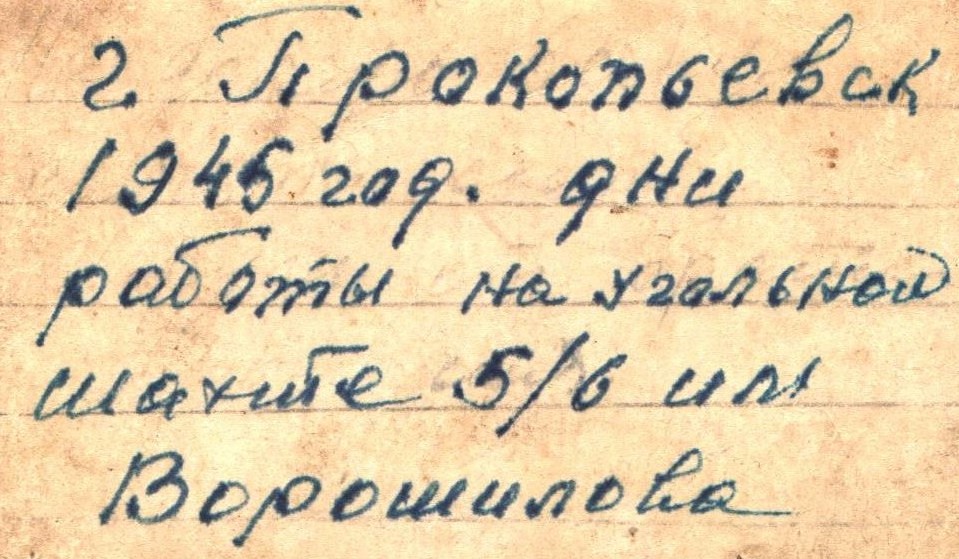 г. Прокопьевск
1945 год. дни
работы на угольной
шахте 5/6 им
Ворошилова